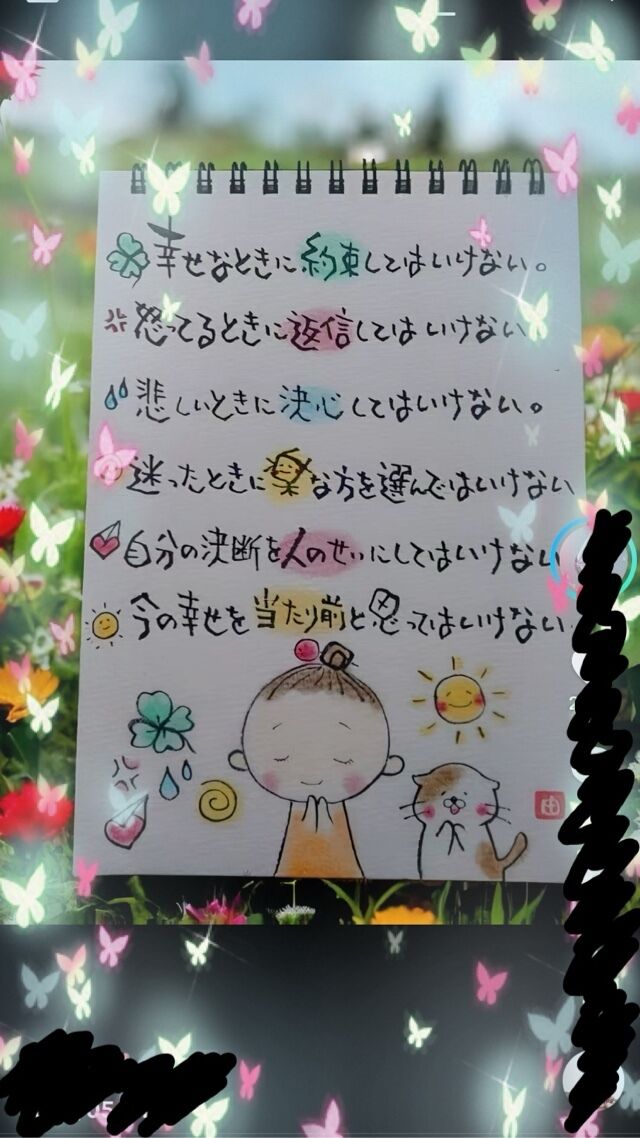 幸せなときに約束してはいけない。
怒ってるときに返信してはいけない
悲しいときに決心してはいけない。
迷ったときに楽な方を選んではいけない
自分の決断を人のせいにしてはいけない
今の幸せを当たり前と思ってはいけない
由